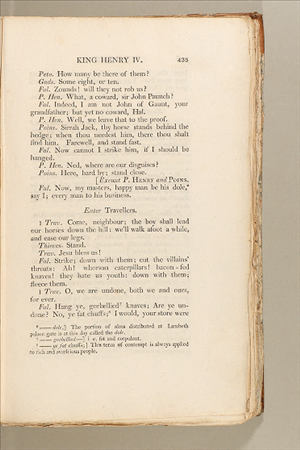 KING HENRY IV. 435
Peto. How many be there of them?
Gads. Some eight, or ten.
Fal. Zounds! will they not rob us?
P. Hen. What, a coward, sir John Paunch?
Fal. Indeed, I am not John of Gaunt, your
grandfather; but yet no coward, Hal.
P. Hen. Well, we leave that to the proof.
Poins. Sirrah Jack, thy horse stands behind the
hedge; when thou needest him, there thou shalt
find him. Farewell, and stand fast.
Fal. Now cannot I strike him, if I should be
hanged.
P. Hen. Ned, where are our disguises?
Poins. Here, hard by; stand close.
[Exeunt P. HENRY and POINS.
Fal. Now, my masters, happy man be his dole,
say I; every man to his business.
Enter Travellers.
1 Trav. Come, neighbour; the boy shall lead
our horses down the hill: we'll walk afoot a while,
and ease our legs.
Thieves. Stand.
Trav. Jesu bless us!
Fal. Strike; down with them; cut the villains'
throats: Ah! whorson caterpillars! bacon-fed
knaves! they hate us youth: down with them;
fleece them.
1 Trav. O, we are undone, both we and ours,
for ever.
Fal. Hang ye, gorbellied knaves; Are ye un-
done? No, ye fat chuffs; I would, your store were
—— dole,] The portion of alms distributed at Lambeth
palace gate is at this day called the dole.
—— gorbellied—] i. e. fat and corpulent.
—— ye fat chuffs;] This term of contempt is always applied
to rich and avaricious people.